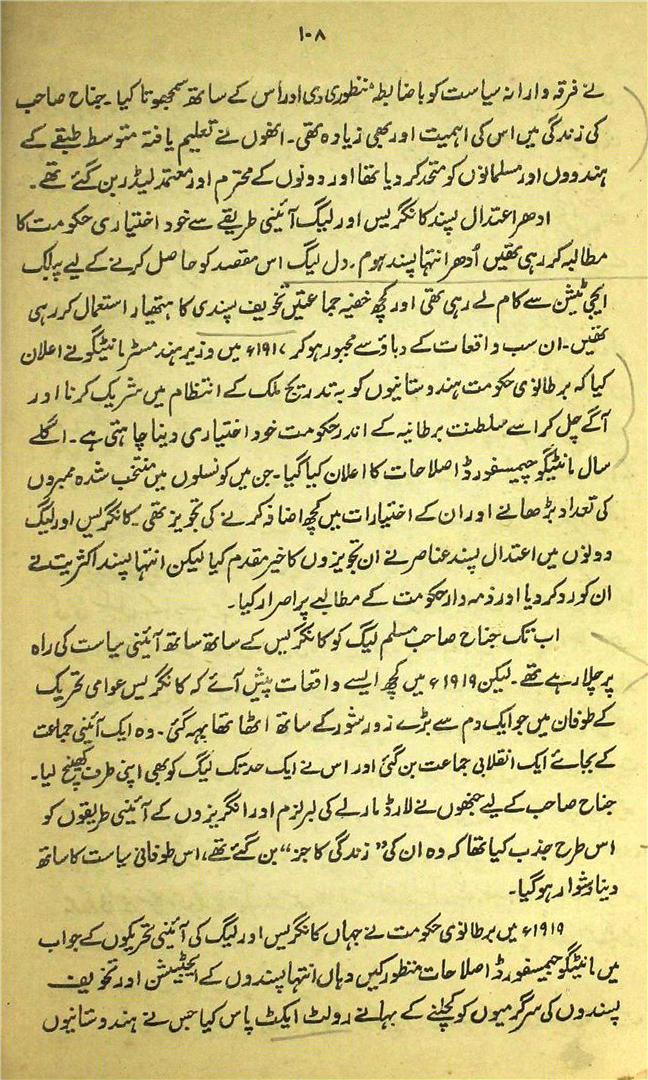 ۱۰۸
نے فرقہ وارانہ سیاست کو باضابطہ منظوری دی اور اس کے ساتھ سمجھوتا کیا۔ جناح صاحب
کی زندگی میں اس کی اہمیت اور بھی زیادہ تھی۔ انھوں نے تعلیم یافتہ متوسط طبقے کے
ہندووں اور مسلمانوں کو متحد کر دیا تھا اور دونوں کے محترم اور معتمد لیڈر بن گئے تھے۔
ادھر اعتدال پسند کانگریس اور لیگ آئینی طریقے سے خود اختیاری حکومت کا
مطالبہ کر رہی تھیں اُدھر انتہا پسند ہوم۔ رول لیگ اس مقصد کو حاصل کرنے کے لیے پبلک
ایجی ٹیشن سے کام لے رہی تھی اور کچھ خفیہ جماعتیں تخویف پسندی کا ہتھیار استعمال کر رہی
تھیں۔ ان سب واقعات کے دباؤ سے مجبور ہو کر ۱۹۱۷ء میں وزیر ہند مسٹر مانٹیگو نے اعلان
کیا کہ برطانوی حکومت ہندوستانیوں کو بہ تدریج ملک کے انتظام میں شریک کرنا اور
آگے چل کر اسے سلطنت برطانیہ کے اندر حکومت خود اختیاری دینا چاہتی ہے۔ اگلے
سال مانٹیگو چیمسفورڈ اصلاحات کا اعلان کیا گیا۔ جن میں کونسلوں میں منتخب شدہ ممبروں
کی تعداد بڑھانے اور ان کے اختیارات میں کچھ اضافہ کرنے کی تجویز تھی۔ کانگریس اور لیگ
دونوں میں اعتدال پسند عناصر نے ان تجویزوں کا خیر مقدم کیا لیکن انتہا پسند اکثریت نے
ان کو رد کر دیا اور ذمہ دار حکومت کے مطالبے پر اصرار کیا۔
اب تک جناح صاحب مسلم لیگ کو کانگریس کے ساتھ ساتھ آئینی سیاست کی راہ
پر چلا رہے تھے۔ لیکن ۱۹۱۹ء میں کچھ ایسے واقعات پیش آئے کہ کانگریس عوامی تحریک
کے طوفان میں جو ایک دم سے بڑے زور شور کے ساتھ اٹھا تھا بہہ گئی۔ وہ ایک آئینی جماعت
کے بجائے ایک انقلابی جماعت بن گئی اور اس نے ایک حد تک لیگ کو بھی اپنی طرف کھینچ لیا۔
جناح صاحب کے لیے جنھوں نے لارڈ مارلے کی لبرلزم اور انگریزوں کے آئینی طریقوں کو
اس طرح جذب کیا تھا کہ وہ ان کی "زندگی کا جز" بن گئے تھے، اس طوفانی سیاست کا ساتھ
دینا دشوار ہو گیا۔
۱۹۱۹ء میں برطانوی حکومت نے جہاں کانگریس اور لیگ کی آئینی تحریکوں کے جواب
میں مانٹیگو چیمسفورڈ اصلاحات منظور کیں وہاں انتہا پسندوں کے ایجٹیشن اور تخویف
پسندوں کی سرگرمیوں کو کچلنے کے بہانے رولٹ ایکٹ پاس کیا جس نے ہندوستانیوں